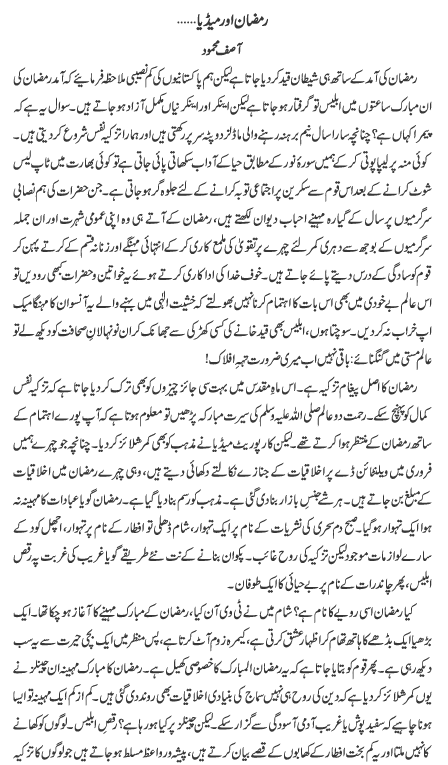 رمضان اور میڈیا......
آصف محمود
رمضان کی آمد کے ساتھ ہی شیطان قید کر دیا جاتا ہے لیکن ہم پاکستانیوں کی کم نصیبی ملاحظہ فرمائیے کہ آمدِ رمضان کی
ان مبارک ساعتوں میں ابلیس تو گرفتار ہو جاتا ہے لیکن اینکر اور اینکرنیاں مکمل آزاد ہو جاتے ہیں۔ سوال یہ ہے کہ
پیمرا کہاں ہے؟ چنانچہ سارا سال نیم برہنہ رہنے والی ماڈلز دوپٹہ سر پر رکھتی ہیں اور ہمارا تزکیہ نفس شروع کر دیتی ہیں۔
کوئی منہ پر لیپا پوتی کر کے ہمیں سورۂ نور کے مطابق حیا کے آداب سکھاتی پائی جاتی ہے تو کوئی بھارت میں ٹاپ لیس
شوٹ کرانے کے بعد اس قوم سے سکرین پر اجتماعی توبہ کرانے کے لئے جلوہ گر ہو جاتی ہے۔ جن حضرات کی ہم نصابی
سرگرمیوں پر سال کے گیارہ مہینے احباب دیوان لکھتے ہیں، رمضان کے آتے ہی وہ اپنی عمومی شہرت اور ان جملہ
سرگرمیوں کے بوجھ سے دہری کمر لئے چہرے پر تقویٰ کی ملمع کاری کر کے انتہائی مہنگے اور زنانہ قسم کے کرتے پہن کر
قوم کو سادگی کے درس دیتے پائے جاتے ہیں۔ خوف خدا کی اداکاری کرتے ہوئے یہ خواتین و حضرات کبھی رو دیں تو
اس عالم بے خودی میں بھی اس بات کا اہتمام کرنا نہیں بھولتے کہ خشیت الٰہی میں بہنے والے یہ آنسو ان کا مہنگا میک
اپ خراب نہ کر دیں۔ سوچتا ہوں، ابلیس بھی قید خانے کی کسی کھڑکی سے جھانک کر ان نونہالانِ صحافت کو دیکھ لے تو
عالم مستی میں گنگنائے: باقی نہیں اب میری ضرورت تہہِ افلاک!
رمضان کا اصل پیغام تزکیہ ہے۔ اس ماہِ مقدس میں بہت سی جائز چیزوں کو بھی ترک کر دیا جاتا ہے کہ تزکیہ نفس
کمال کو پہنچ سکے۔ رحمت دو عالم صلی اللہ علیہ وسلم کی سیرت مبارکہ پڑھیں تو معلوم ہوتا ہے کہ آپ پورے اہتمام کے
ساتھ رمضان کے منتظر ہوا کرتے تھے۔ لیکن کارپوریٹ میڈیا نے مذہب کو بھی کمرشلائز کر دیا۔ چنانچہ جو چہرے ہمیں
فروری میں ویلنٹائن ڈے پر اخلاقیات کے جنازے نکالتے دکھائی دیتے ہیں، وہی چہرے رمضان میں اخلاقیات
کے مبلغ بن جاتے ہیں۔ ہر شے جنسِ بازار بنا دی گئی ہے۔ مذہب کو رسم بنا دیا گیا ہے۔ رمضان گویا عبادات کا مہینہ نہ
ہوا ایک تہوار ہو گیا۔ صبح دم سحری کی نشریات کے نام پر ایک تہوار، شام ڈھلی تو افطار کے نام پر تہوار، اچھل کود کے
سارے لوازمات موجود لیکن تزکیہ کی روح غائب۔ پکوان بنانے کے نت نئے طریقے گویا غریب کی غربت پہ رقصِ
ابلیس، پھر چاند رات کے نام پر بے حیائی کا ایک طوفان۔
کیا رمضان اسی رویے کا نام ہے؟ شام میں نے ٹی وی آن کیا، رمضان کے مبارک مہینے کا آغاز ہو چکا تھا۔ ایک
بڑھیا ایک بڈھے کا ہاتھ تھام کر اظہار عشق کرتی ہے، کیمرہ زوم آؤٹ کرتا ہے، پس منظر میں ایک بچی حیرت سے یہ سب
دیکھ رہی ہے۔ پھر قوم کو بتایا جاتا ہے کہ یہ رمضان المبارک کا خصوصی کھیل ہے۔ رمضان کا مبارک مہینہ ان چینلز نے
یوں کمرشلائز کر دیا ہے کہ دین کی روح ہی نہیں سماج کی بنیادی اخلاقیات بھی روند دی گئی ہیں۔ کم از کم ایک مہینہ تو ایسا
ہونا چاہیے کہ سفید پوش یا غریب آدمی آسودگی سے گزار سکے۔ لیکن چینلز پر کیا ہو رہا ہے؟ رقصِ ابلیس۔ لوگوں کو کھانے کا
نہیں ملتا اور یہ کم بخت افطار کے کھابوں کے قصے بیان کرتے ہیں، پیشہ ور واعظ مسلط ہو جاتے ہیں جو لوگوں کا تزکیہ